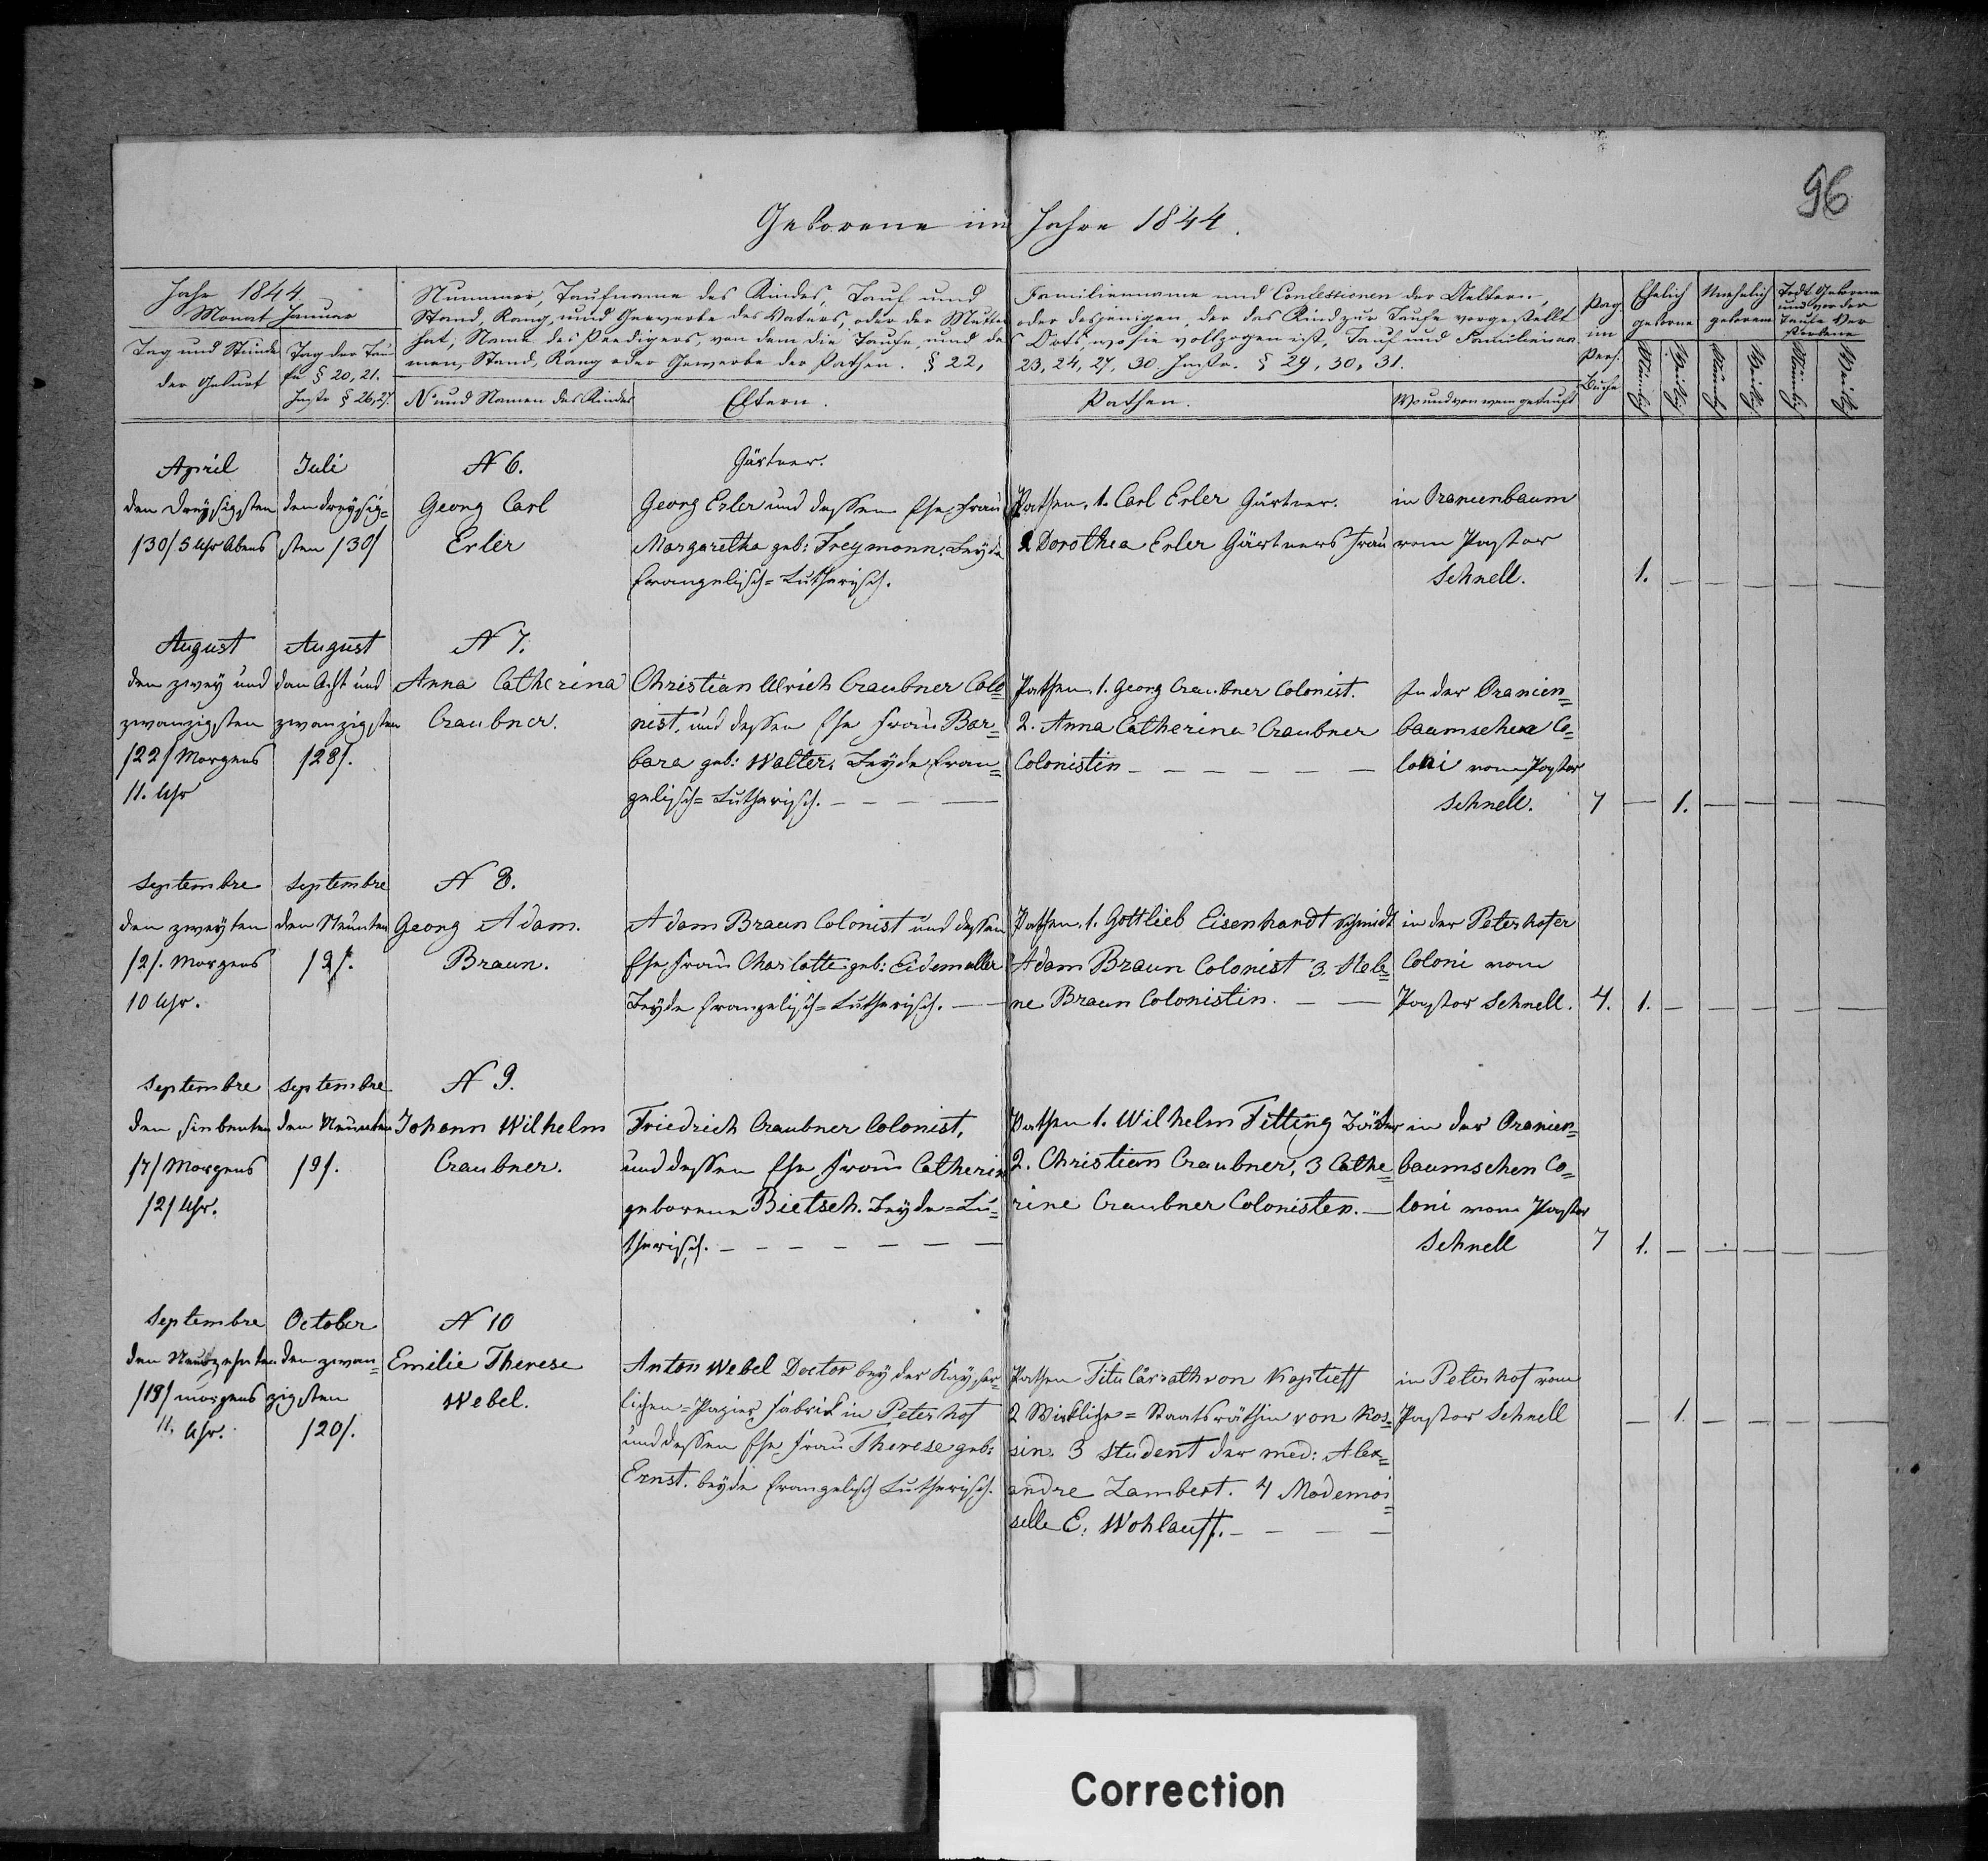 96
Geborene im Jahre 1844.
Jahr 1844
Monat Januar
Tag und Stunde
der Geburt
Tag der Tau
fe § 20, 21.
Instr § 26, 27.
Nummer, Taufname des Kindes, Tauf und
Stand, Rang, und Gewerbe des Vaters, oder der Mutter
hat, Name des Predigers, von dem die Taufe, und de
men, Stand, Rang oder Gewerbe der Pathen. § 22,
N und Namen des Kindes
Eltern.
Familienname und Confessionen der Aeltern,
oder desjenigen, der das Kind zur Taufe vorgestellt
Orts, wo sie vollzogen ist, Tauf und Familienna
23, 24, 27, 30. Instr. § 29, 30, 31.
Pathen.
Wo und von wem getauft
Pag.
im
Pers.
Buche
Ehelich
geborne
Unehelich
geborene
Todt Geborene
und vor der
Taufe Ver
storbene
Männlich
Weiblich
Männlich
Weiblich
Männlich
Weiblich
April
den dreysigsten
/30/ 5 Uhr Abens
Juli
den dreysig=
sten /30/
N 6.
Georg Carl
Erler
Gärtner.
Georg Erler und dessen Ehe Frau
Margaretha geb: Freymann, Beyde
Evangelisch=Lutherisch.
Pathen. 1. Carl Erler Gärtner.
2 Dorothea Erler Gärtners Frau
in Oranienbaum
vom Pastor
Schnell.
1. — — — — —
August
den zwey und
zwanzigsten
/22/ Morgens
11. Uhr
August
den Acht und
zwanzigsten
/28/.
N 7.
Anna Catherina
Craubner.
Christian Ulrich Craubner Colo=
nist, und dessen Ehe Frau Bar=
bara geb: Walter. Beyde Evan=
gelisch=Lutherisch. — — — —
Pathen. 1. Georg Craubner Colonist.
2. Anna Catherina Craubner
Colonistin — — — — — —
In der Oranien=
baumschen Co=
loni vom Pastor
Schnell.
7 — 1. — — — —
Septembre
den zweyten
/2/. Morgens
10 Uhr.
Septembre
den Neunten
/9/.
N 8.
Georg Adam.
Braun.
Adam Braun Colonist und dessen
Ehe Frau Charlotte geb: Eidemuller
Beyde Evangelisch=Lutherisch. —
Pathen. 1. Gottlieb Eisenhardt Schmidt
Adam Braun Colonist 3. Hele=
ne Braun Colonistin. — —
in der Peterhofer
Coloni vom
Pastor Schnell.
4. 1. — — — — —
Septembre
den siebenten
/7/ Morgens
/2/ Uhr.
Septembre
den Neunten
/9/.
N 9.
Johann Wilhelm
Craubner.
Friedrich Craubner Colonist,
und dessen Ehe Frau Catherin
geborene Bietsch. Beyde=Lu=
therisch. — — — — — — —
Pathen 1. Wilhelm Fitting Bäcker
2. Christian Craubner, 3 Cathe=
rine Craubner Colonisten. —
in der Oranien=
baumschen Co=
loni vom Pastor
Schnell
7 1. — — — — —
Septembre
den Neunzehnten
/19/ morgens
11. Uhr.
October
den zwan=
zigsten
/20/.
N 10
Emilie Therese
Webel.
Anton Webel Doctor bey der Kayser=
lichen=Papier Fabrik in Peterhof
und dessen Ehe Frau Therese geb:
Ernst. beyde Evangelisch Lutherisch.
Pathen Titulärrath von Koptieff
2 Wirkliche=Staatsräthin von Ros=
sin. 3 Student der med: Alex=
andre Lambert. 4 Mademoi=
selle E. Wohlauff. — — — —
in Peterhof vom
Pastor Schnell
— 1. — — — —
Correction